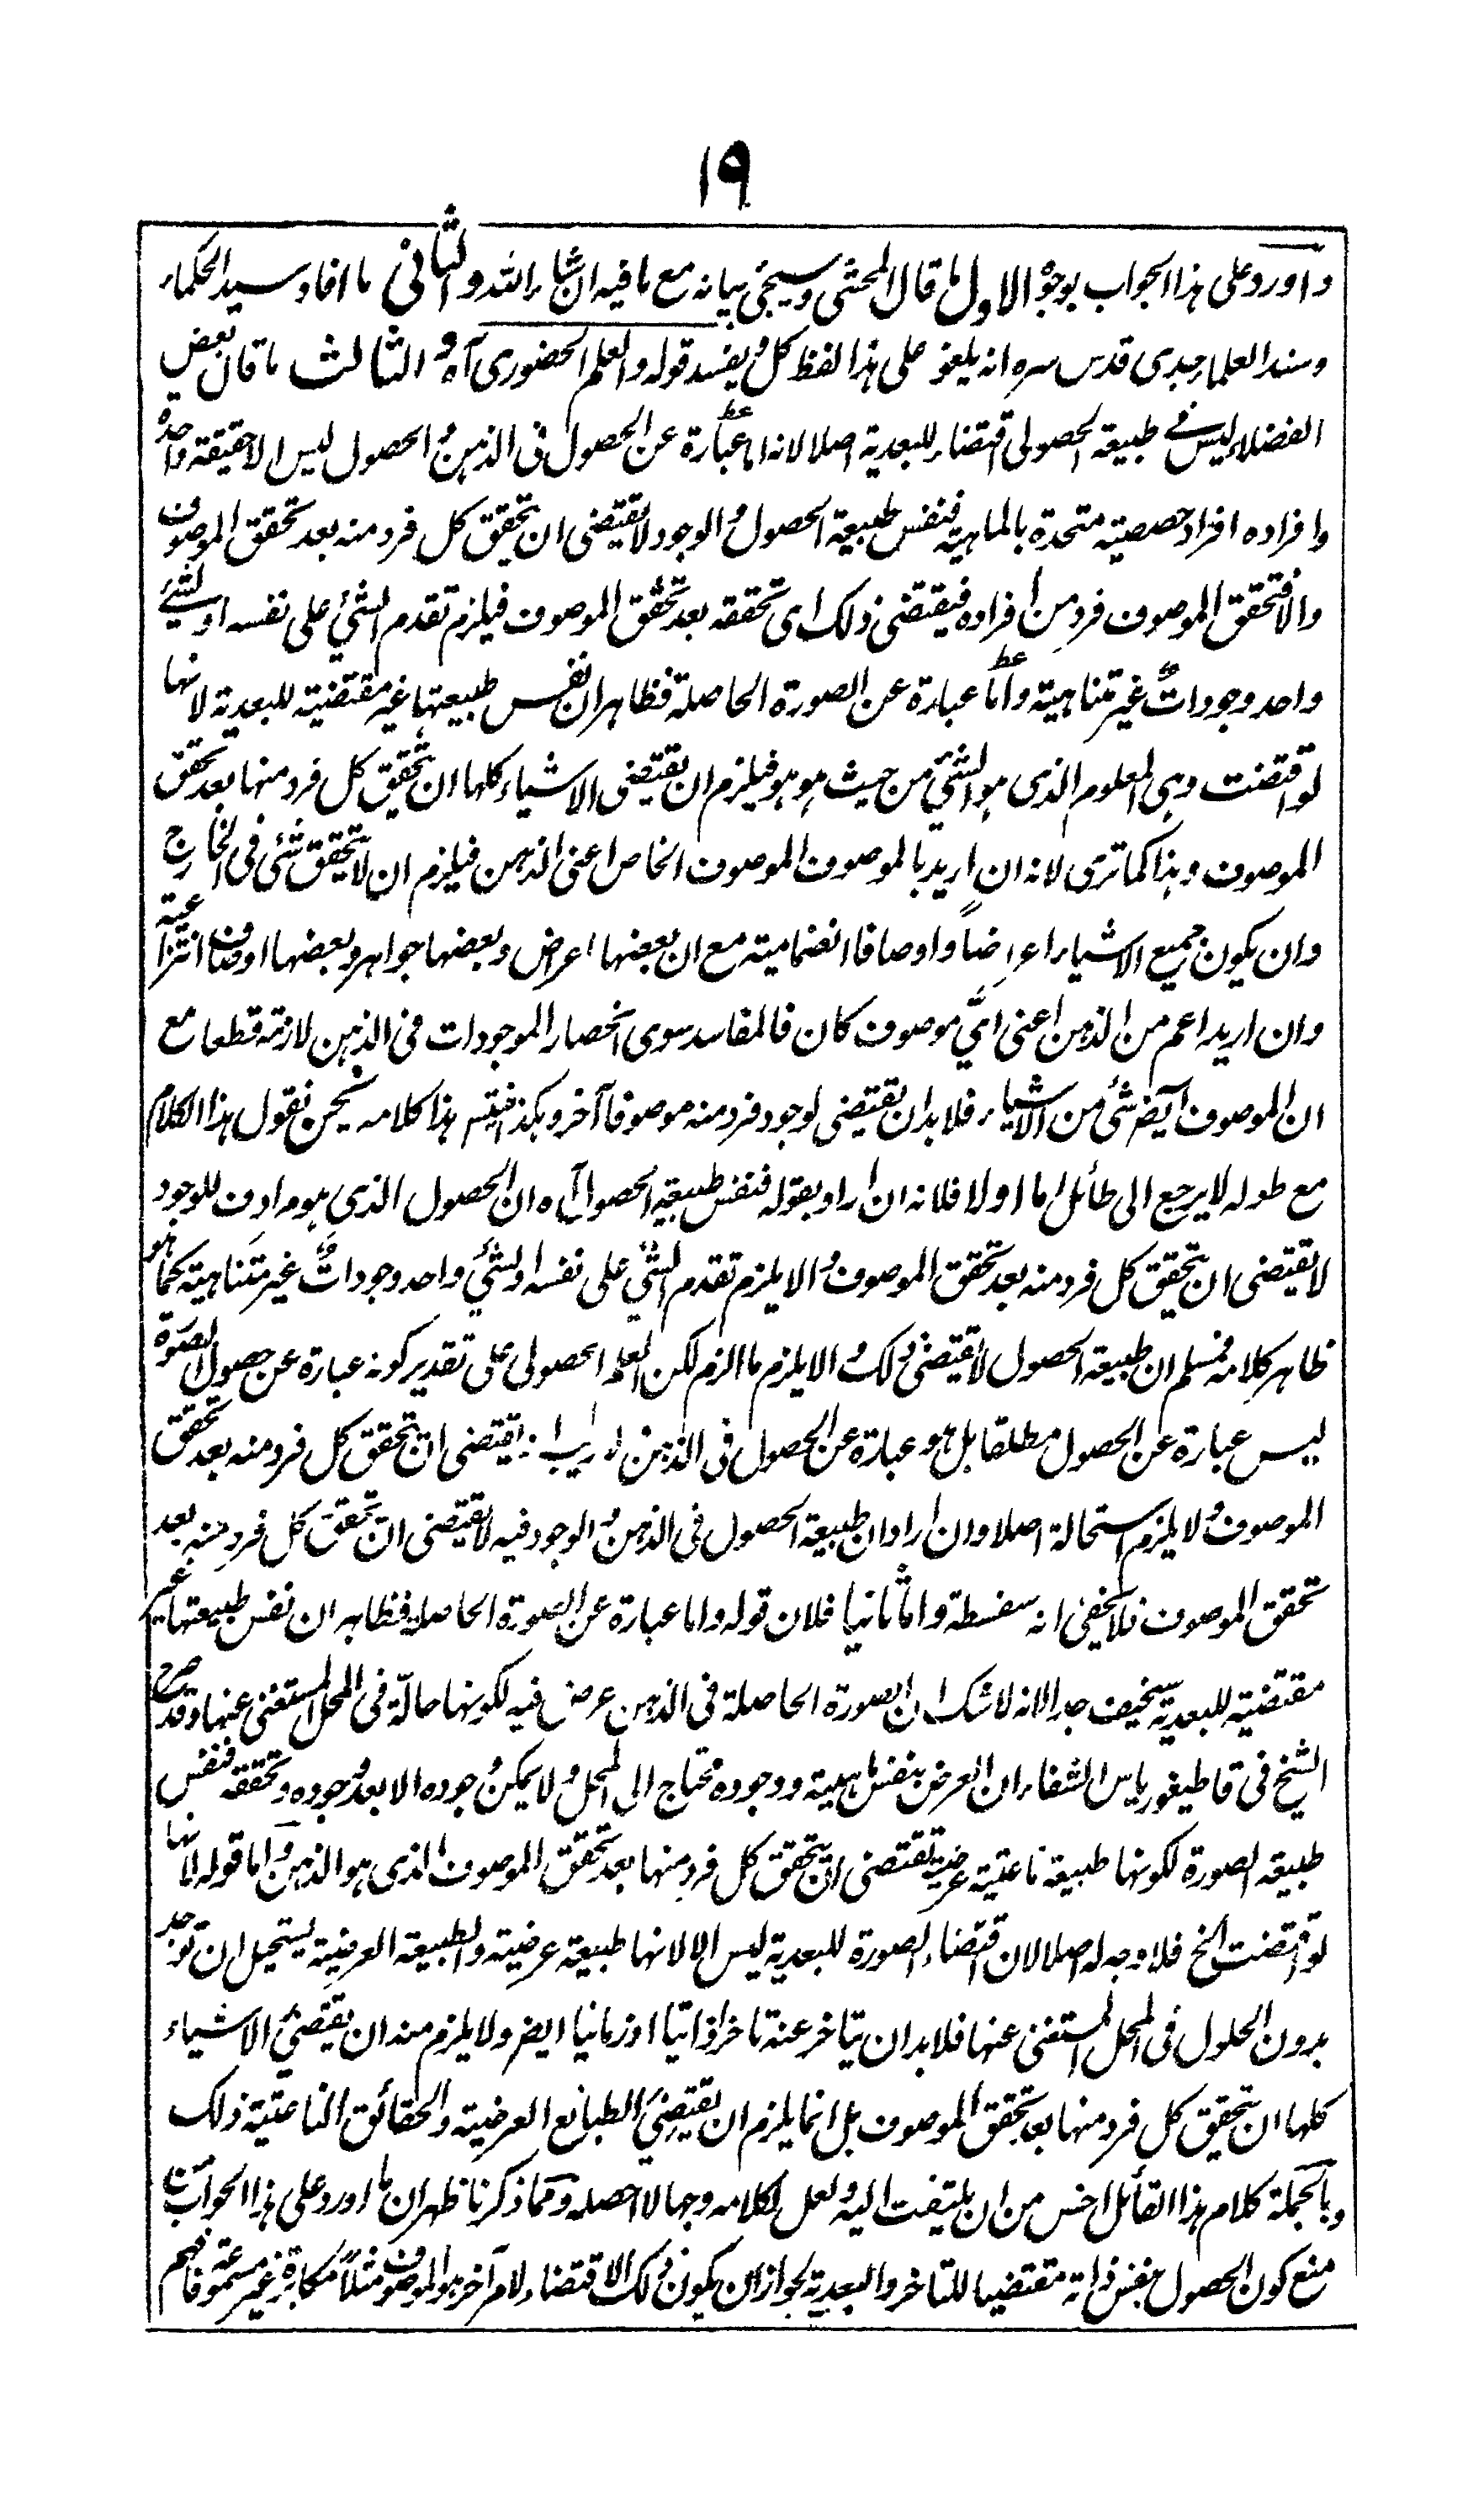 ١٩
واورد على هذا الجواب بوجوه الاول ما قال المحشى وسيجئ بيانه مع ما فيه ان شاء الله والثانى ما افاد سيد الحكماء
وسند العلماء جدى قدس سره انه يلغو على هذا لفظ كل ويفسد قوله والعلم الحضورى آه والثالث ما قال بعض
الفضلاء ليس فى طبيعة الحصولى اقتضاء للبعدية اصلا لانه اما عبارة عن الحصول فى الذهن والحصول ليس الا حقيقة واحدة
وافراده افراد حصصية متحدة بالماهية فنفس طبيعة الحصول والوجود لا يقتضى ان يتحقق كل فرد منه بعد تحقق الموصوف
والا فتحقق الموصوف فرد من افراده فيقتضى ذلك اى تحققه بعد تحقق الموصوف فيلزم تقدم الشئ على نفسه او لشئ
واحد وجودات غير متناهية واما عبارة عن الصورة الحاصلة فظاهر ان نفس طبيعتها غير مقتضية للبعدية لانها
لو اقتضت وهى المعلوم الذى هو الشئ من حيث هو هو فيلزم ان يقتضى الاشياء كلها ان يتحقق كل فرد منها بعد تحقق
الموصوف وهذا كما ترى لانه ان اريد بالموصوف الموصوف الخاص اعنى الذهن فيلزم ان لا يتحقق شئ فى الخارج
وان يكون جميع الاشياء اعراضاً واوصافا انضمامية مع ان بعضها اعرض وبعضها جواهر وبعضها اوصاف انتزاعية
وان اريد اعم من الذهن اعنى اىّ موصوف كان فالمفاسد سوى انحصار الموجودات فى الذهن لازمة قطعا مع
ان الموصوف ايضا شئ من الاشياء فلا بد ان يقتضى لوجود فرد منه موصوفا آخر وهكذا فيتس هذا كلامه نحن نقول هذا الكلام
مع طوله لا يرجع الى طائل اما اولا فلانه ان اراد بقوله فنفس طبيعة الحصول آه ان الحصول الذى هو مرادف للوجود
لا يقتضى ان يتحقق كل فرد منه بعد تحقق الموصوف والا يلزم تقدم الشئ على نفسه او لشئ واحد وجودات غير متناهية كما هو
ظاهر كلامه فمسلم ان طبيعة الحصول لا يقتضى ذلك والا يلزم ما الزم لكن العلم الحصولى على تقدير كونه عبارة عن حصول الصورة
ليس عبارة عن الحصول مطلقا بل هو عبارة عن الحصول فى الذهن ولا ريب انه يقتضى ان يتحقق كل فرد منه بعد تحقق
الموصوف ولا يلزم استحالة اصلا وان اراد ان طبيعة الحصول فى الذهن والوجود فيه لا يقتضى ان يتحقق كل فرد منه بعد
تحقق الموصوف فلا يخفى انه سفسطة واما ثانيا فلان قوله واما عبارة عن الصورة الحاصلة فظاهر ان نفس طبيعتها غير
مقتضية للبعدية سخيف جدا لانه لا شك ان الصورة الحاصلة فى الذهن عرض فيه لكونها حالّة فى المحل المستغنى عنها وقد صرح
الشيخ فى قاطيغورياس الشفاء ان العرض بنفس ماهيته ووجوده محتاج الى المحل ولا يمكن وجوده الا بعد وجوده وتحققه فنفس
طبيعة الصورة لكونها طبيعة ناعتية عرضية تقتضى ان يتحقق كل فرد منها بعد تحقق الموصوف الذى هو الذهن واما قوله لانها
لو اقتضت الخ فلا وجه له اصلا لان اقتضاء الصورة للبعدية ليس الا لانها طبيعة عرضية والطبيعة العرضية يستحيل ان توجد
بدون الحلول فى المحل المستغنى عنها فلا بد ان يتاخر عنه تاخرا ذاتيا او زمانيا ايضا ولا يلزم منه ان يقتضى الاشياء
كلها ان يتحقق كل فرد منها بعد تحقق الموصوف بل انما يلزم ان يقتضى الطبائع العرضية والحقائق الناعتية ذلك
وبالجملة كلام هذا القائل اخس من ان يلتفت اليه ولعل لكلامه وجها لا احصله ومما ذكرنا ظهر ان ما اورد على هذا الجواب من
منع كون الحصول بنفس ذاته مقتضيا للتاخر والبعدية لجواز ان يكون ذلك الاقتضاء لامر آخر هو الموصوف مثلاً مكابرة غير مسموعة فافهم